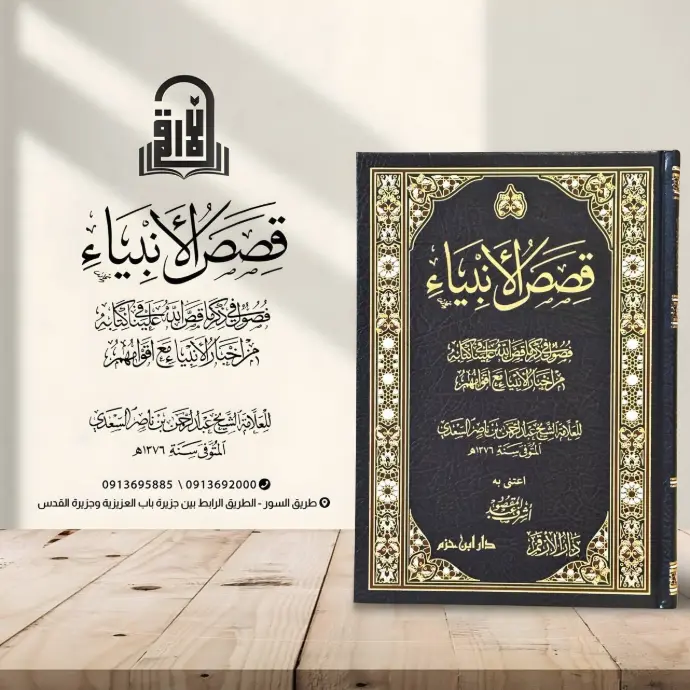 الأرقم
قصص الأنبياء
فصول في ذكر ما قص الله علينا في كتابه
من أخبار الأنبياء مع أقوامهم
للعلامة الشيخ عبد الرحمن بن ناصر السعدي
المتوفى سنة ١٣٧٦هـ
0913695885 \ 0913692000
طريق السور - الطريق الرابط بين جزيرة باب العزيزية وجزيرة القدس
قصص الأنبياء
فصول في ذكر ما قص الله علينا في كتابه
من أخبار الأنبياء مع أقوامهم
للعلامة الشيخ عبد الرحمن بن ناصر السعدي
المتوفى سنة ١٣٧٦هـ
اعتنى به
أشرف عبد المقصود
دار الأرقم
دار ابن حزم